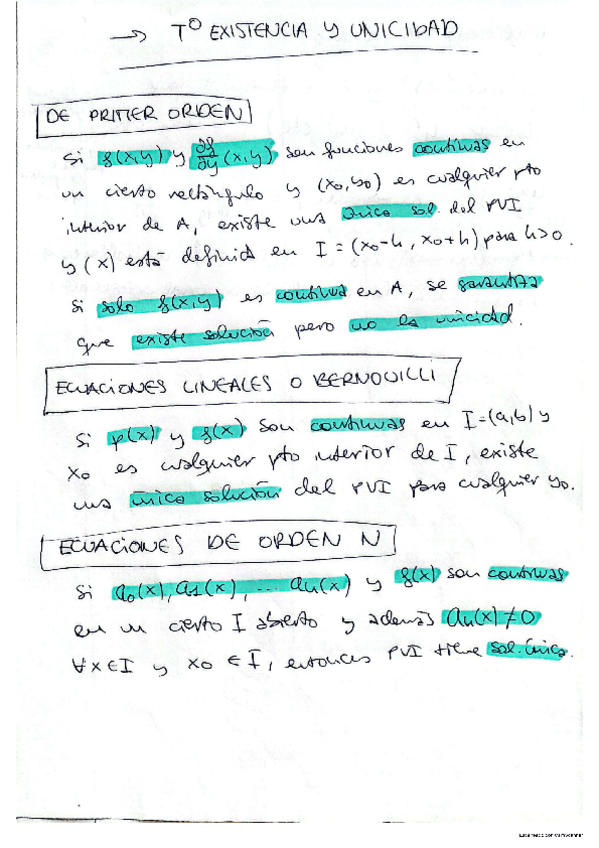 → Tº EXISTENCIA Y UNICIDAD
DE PRIMER ORDEN
Si f(x,y) y ∂f/∂y (x,y) son funciones continuas en
un cierto rectángulo y (x₀,y₀) es cualquier pto
interior de A, existe una única sol. del PVI
y(x) está definida en I = (x₀-h, x₀+h) para h>0.
Si solo f(x,y) es continua en A, se garantiza
que existe solución pero no la unicidad.
ECUACIONES LINEALES O BERNOUILLI
Si p(x) y f(x) son continuas en I=(a,b) y
x₀ es cualquier pto interior de I, existe
una única solución del PVI para cualquier y₀.
ECUACIONES DE ORDEN N
Si a₀(x), a₁(x), ... aₙ(x) y f(x) son continuas
en un cierto I abierto y además aₙ(x)≠0
∀x∈I y x₀ ∈ I, entonces PVI tiene sol. única.